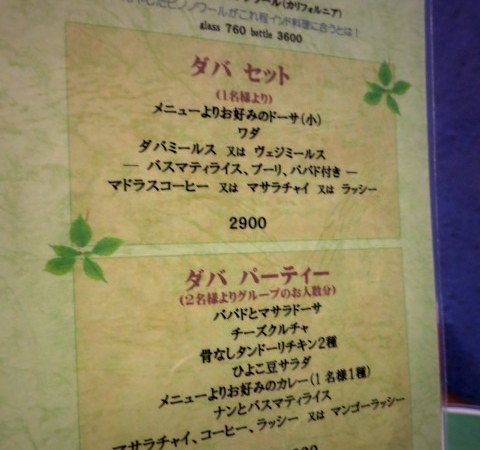 ピノノワールがこれ程インド料理に合うとは！
glass 760 bottle 3600
ダバ セット
(1名様より)
メニューよりお好みのドーサ(小)
ワダ
ダバミールス 又は ヴェジミールス
― バスマティライス、プーリ、パパド付き ―
マドラスコーヒー 又は マサラチャイ 又は ラッシー
2900
ダバ パーティー
(2名様よりグループのお人数分)
パパドとマサラドーサ
チーズクルチャ
骨なしタンドーリチキン2種
ひよこ豆サラダ
メニューよりお好みのカレー(1名様1種)
ナンとバスマティライス
マサラチャイ、コーヒー、ラッシー 又は マンゴーラッシー